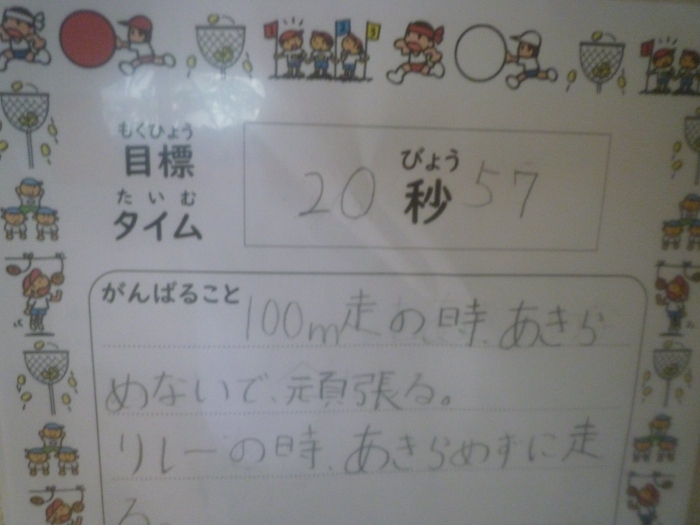 もくひょう
目標
たいむ
タイム
20 秒 57
びょう
がんばること
100m走の、時、あきら
めないで、頑張る。
リレーの時、あきらめずに走
る。